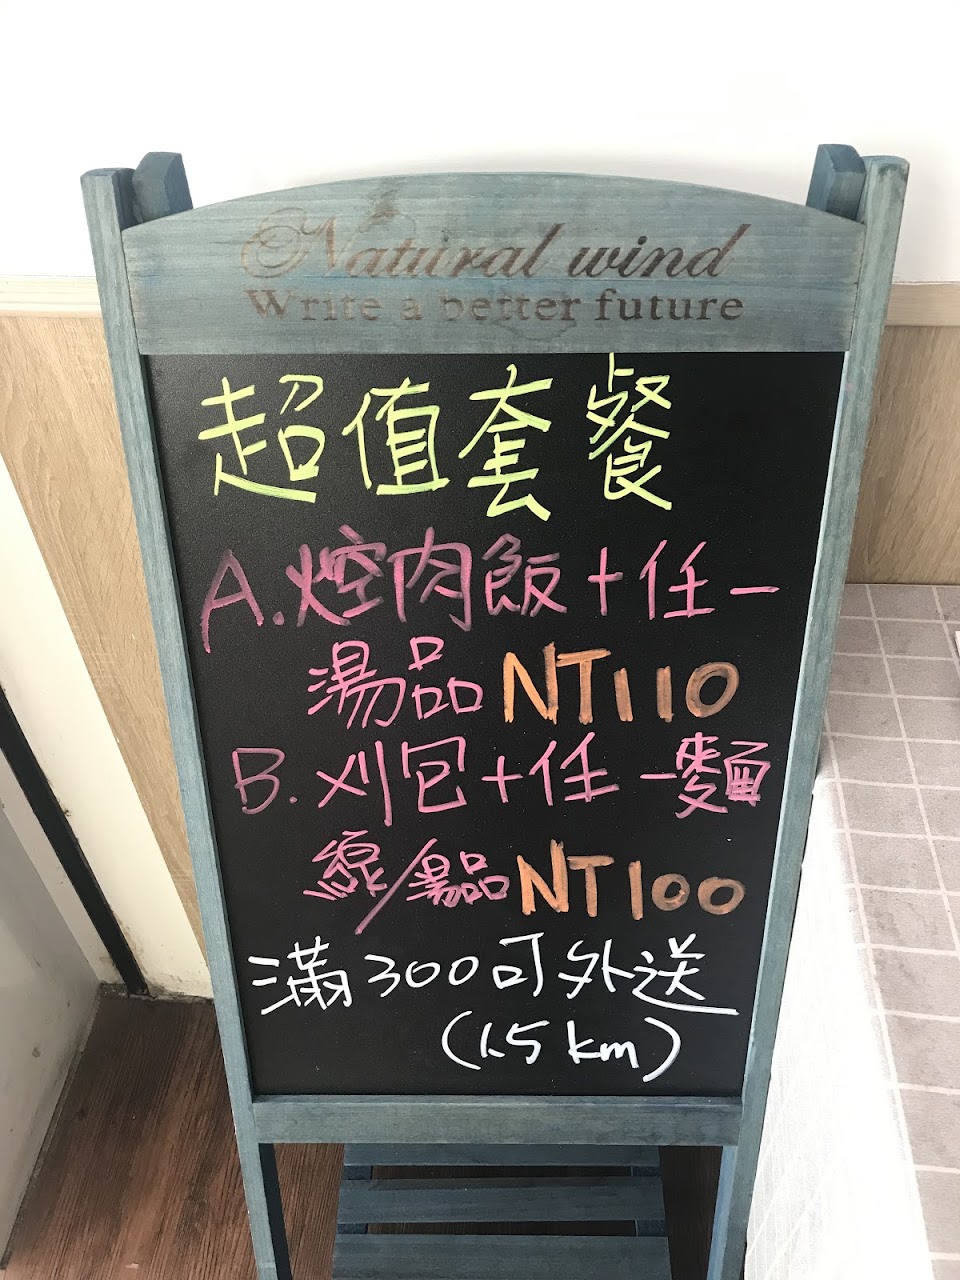 Natural wind
Write a better future
超值套餐
A.焢肉飯+任一
湯品NT110
B.刈包+任一麵
線/湯品NT100
滿300可外送
(1.5km)